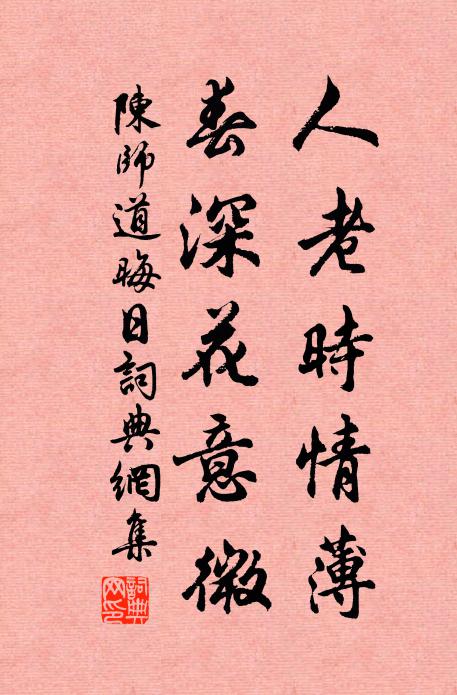 人老時情薄
春深花意微
陳師道晦日詞典網集
詞典
网印